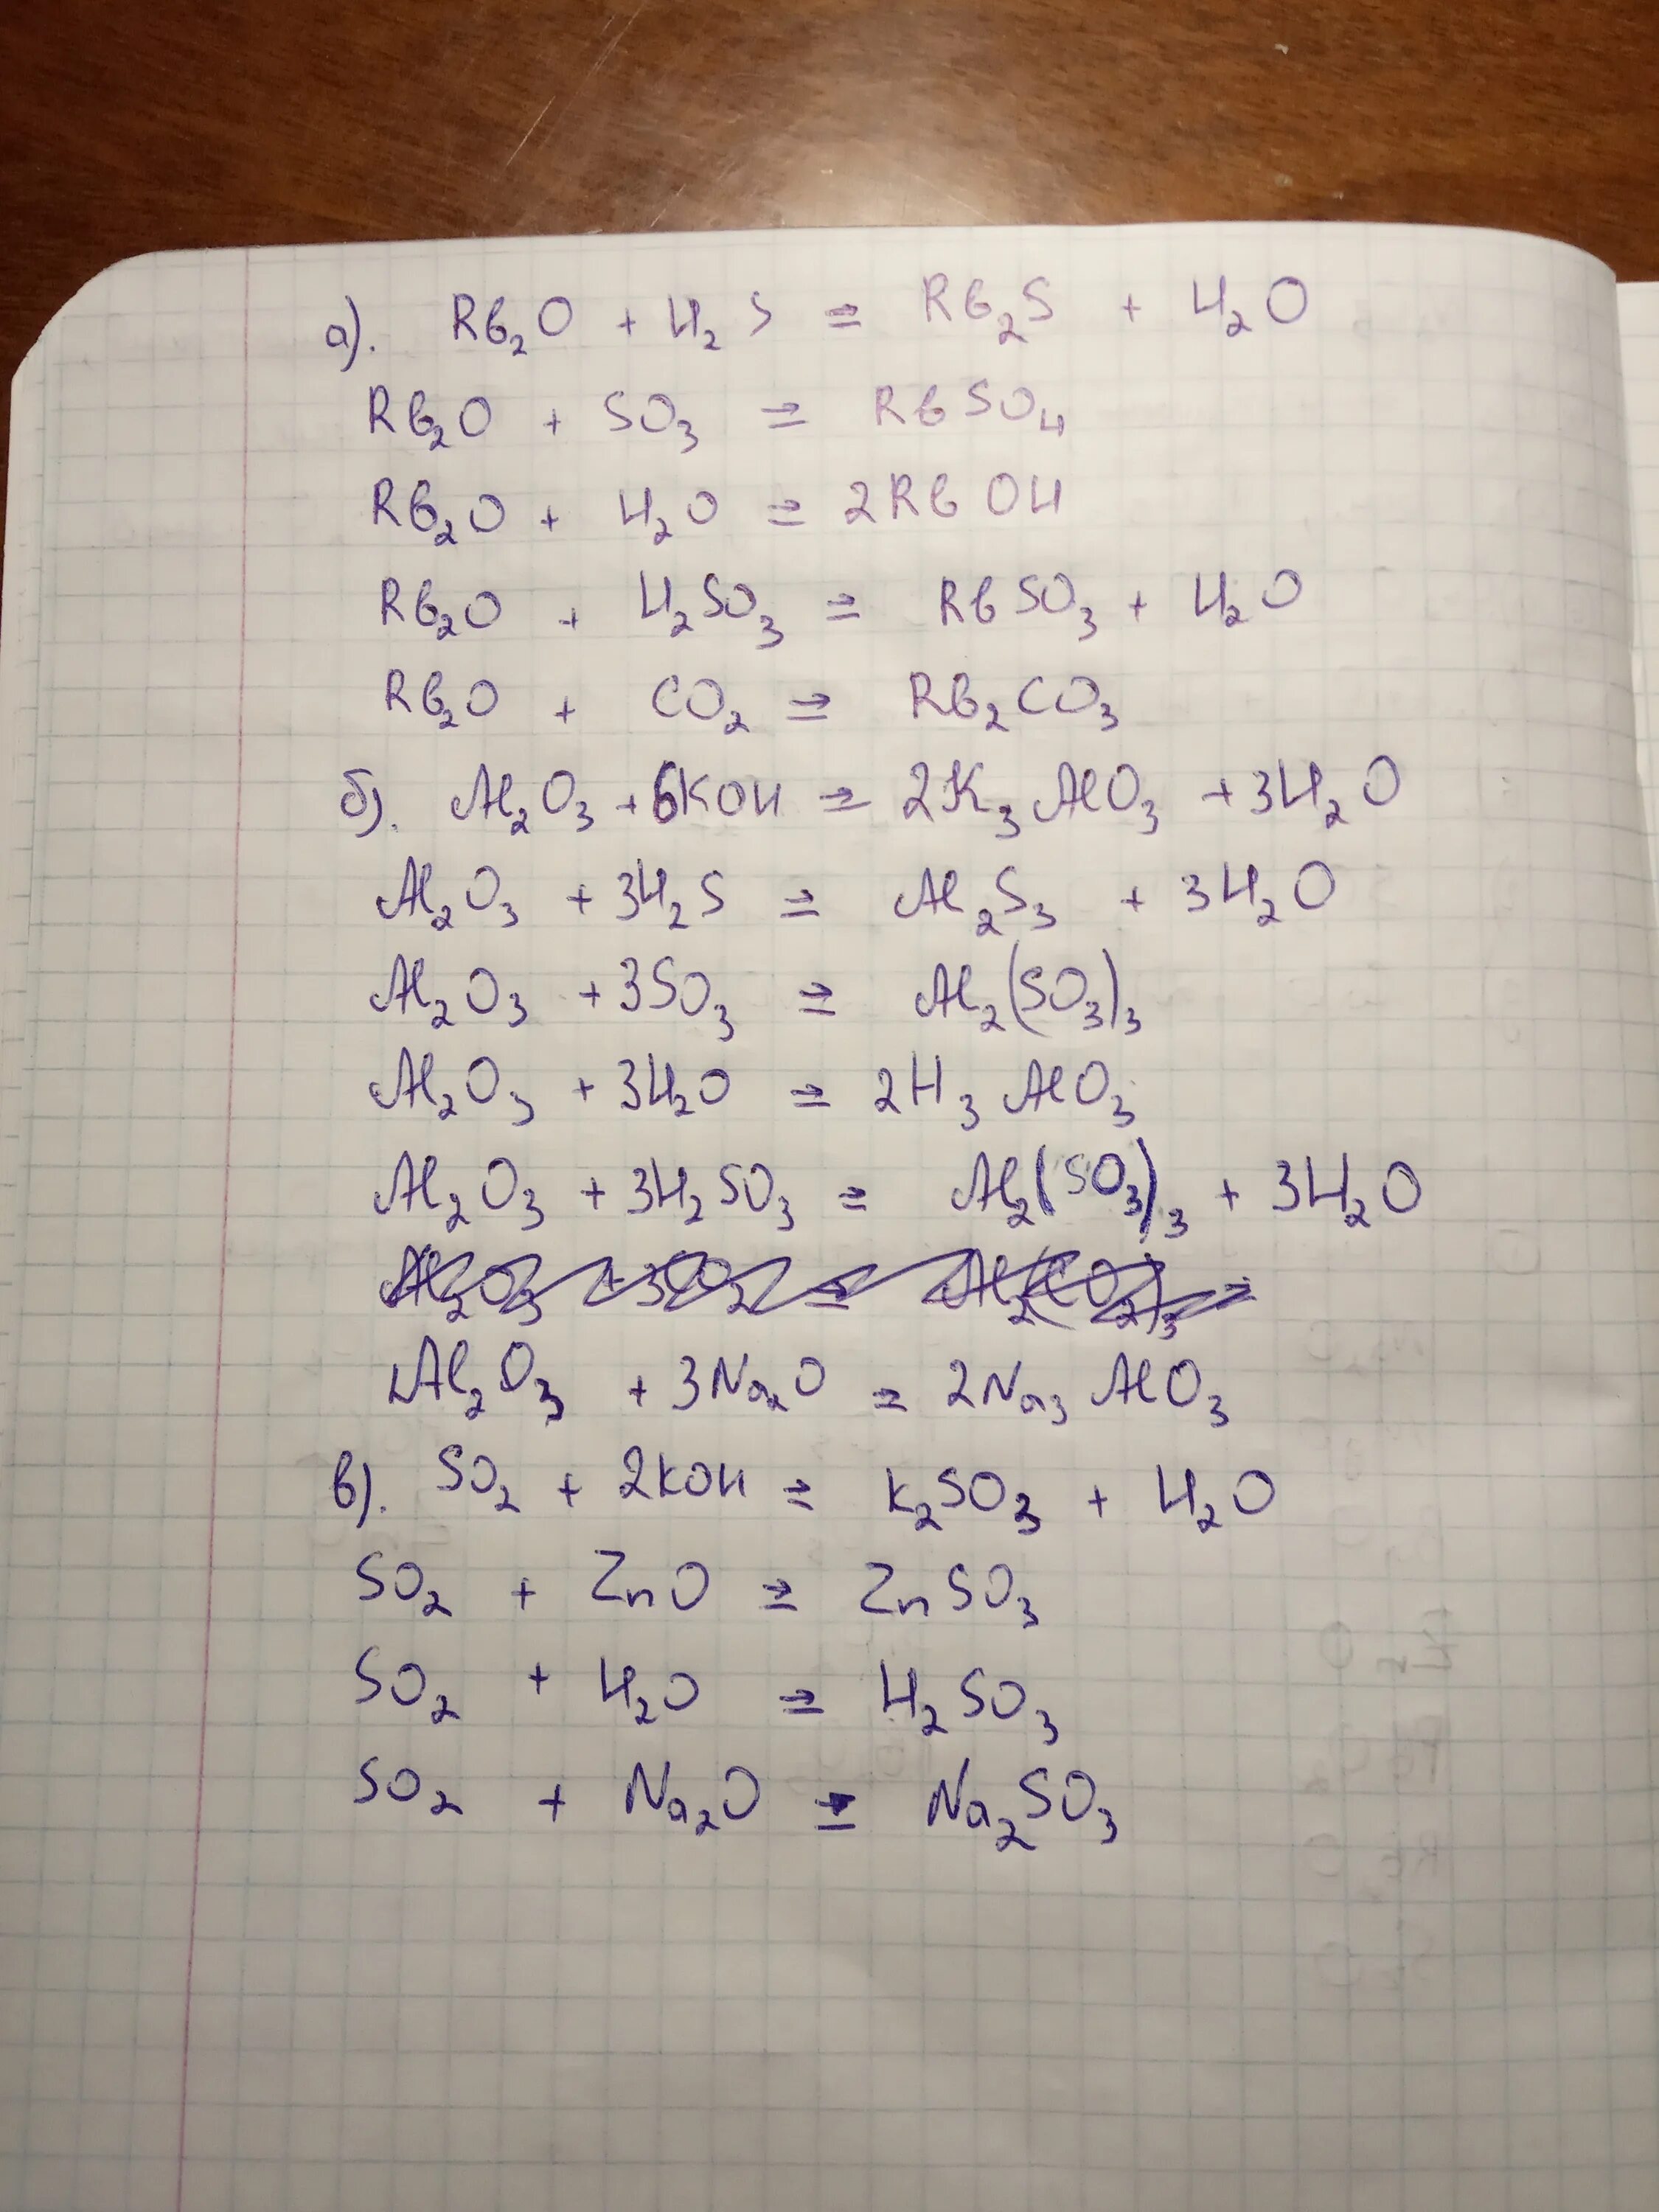 а). Rb₂O + H₂S = Rb₂S + H₂O
Rb₂O + SO₃ = RbSO₄
Rb₂O + H₂O = 2RbOH
Rb₂O + H₂SO₃ = RbSO₃ + H₂O
Rb₂O + CO₂ = Rb₂CO₃
б). Al₂O₃ + 6KOH = 2K₃AlO₃ + 3H₂O
Al₂O₃ + 3H₂S = Al₂S₃ + 3H₂O
Al₂O₃ + 3SO₃ = Al₂(SO₃)₃
Al₂O₃ + 3H₂O = 2H₃AlO₃
Al₂O₃ + 3H₂SO₃ = Al₂(SO₃)₃ + 3H₂O
Al₂O₃ + 3CO₂ = Al₂(CO₂)₃
Al₂O₃ + 3Na₂O = 2Na₃AlO₃
в). SO₂ + 2KOH = K₂SO₃ + H₂O
SO₂ + ZnO = ZnSO₃
SO₂ + H₂O = H₂SO₃
SO₂ + Na₂O = Na₂SO₃